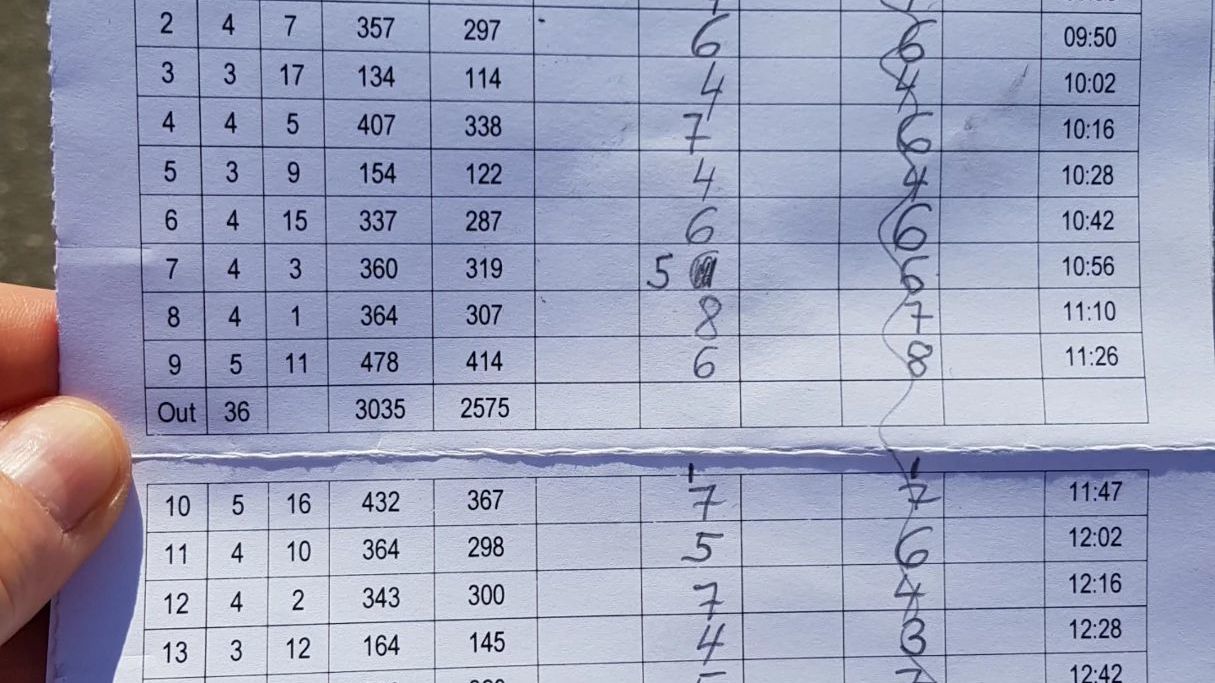 2 4 7 357 297 6 6 09:50
3 3 17 134 114 4 4 10:02
4 4 5 407 338 7 6 10:16
5 3 9 154 122 4 4 10:28
6 4 15 337 287 6 6 10:42
7 4 3 360 319 5 6 10:56
8 4 1 364 307 8 7 11:10
9 5 11 478 414 6 8 11:26
Out 36 3035 2575
10 5 16 432 367 7 7 11:47
11 4 10 364 298 5 6 12:02
12 4 2 343 300 7 4 12:16
13 3 12 164 145 4 3 12:28
12:42